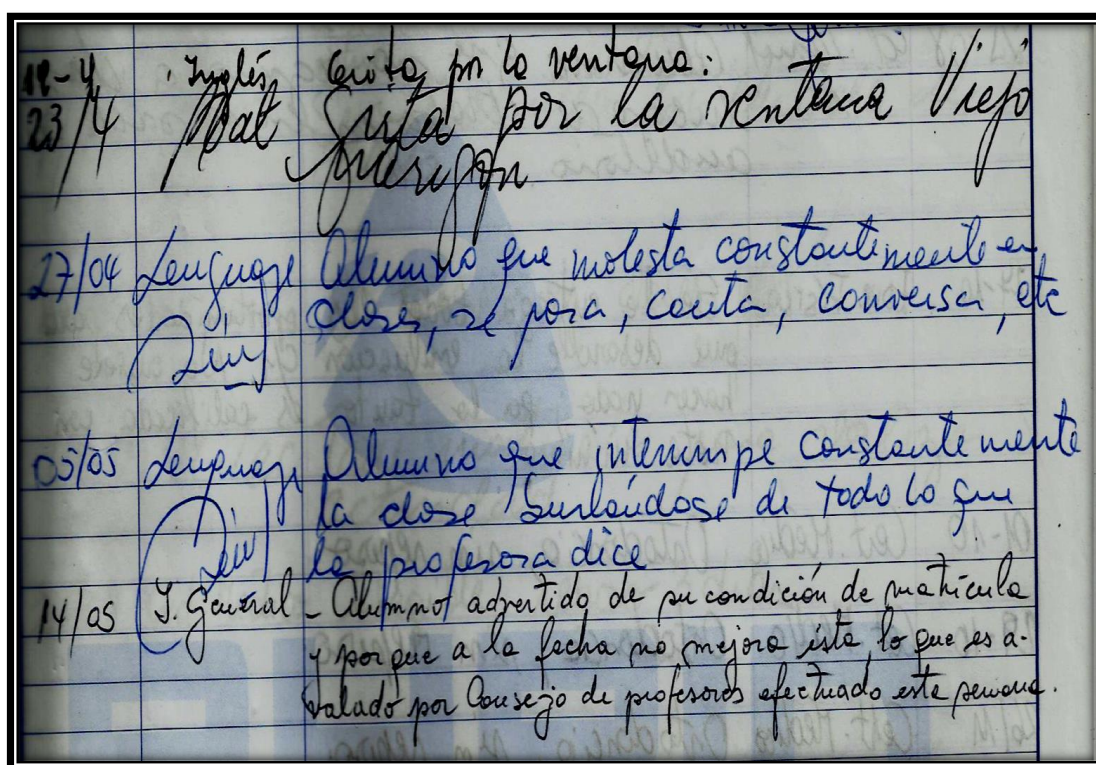 19-4 . Inglés Grita por la ventana:
23/4 Mat Grita por la ventana Viejo
27/04 Lenguaje Alumno que molesta constantemente en
clases, se para, canta, conversa, etc
05/05 Lenguaje Alumno que interrumpe constantemente
la clase burlándose de todo lo que
la profesora dice
14/05 I. General - Alumno advertido de su condición de matrícula
y porque a la fecha no mejora ésta, lo que es a-
valado por Consejo de profesores efectuado esta semana.